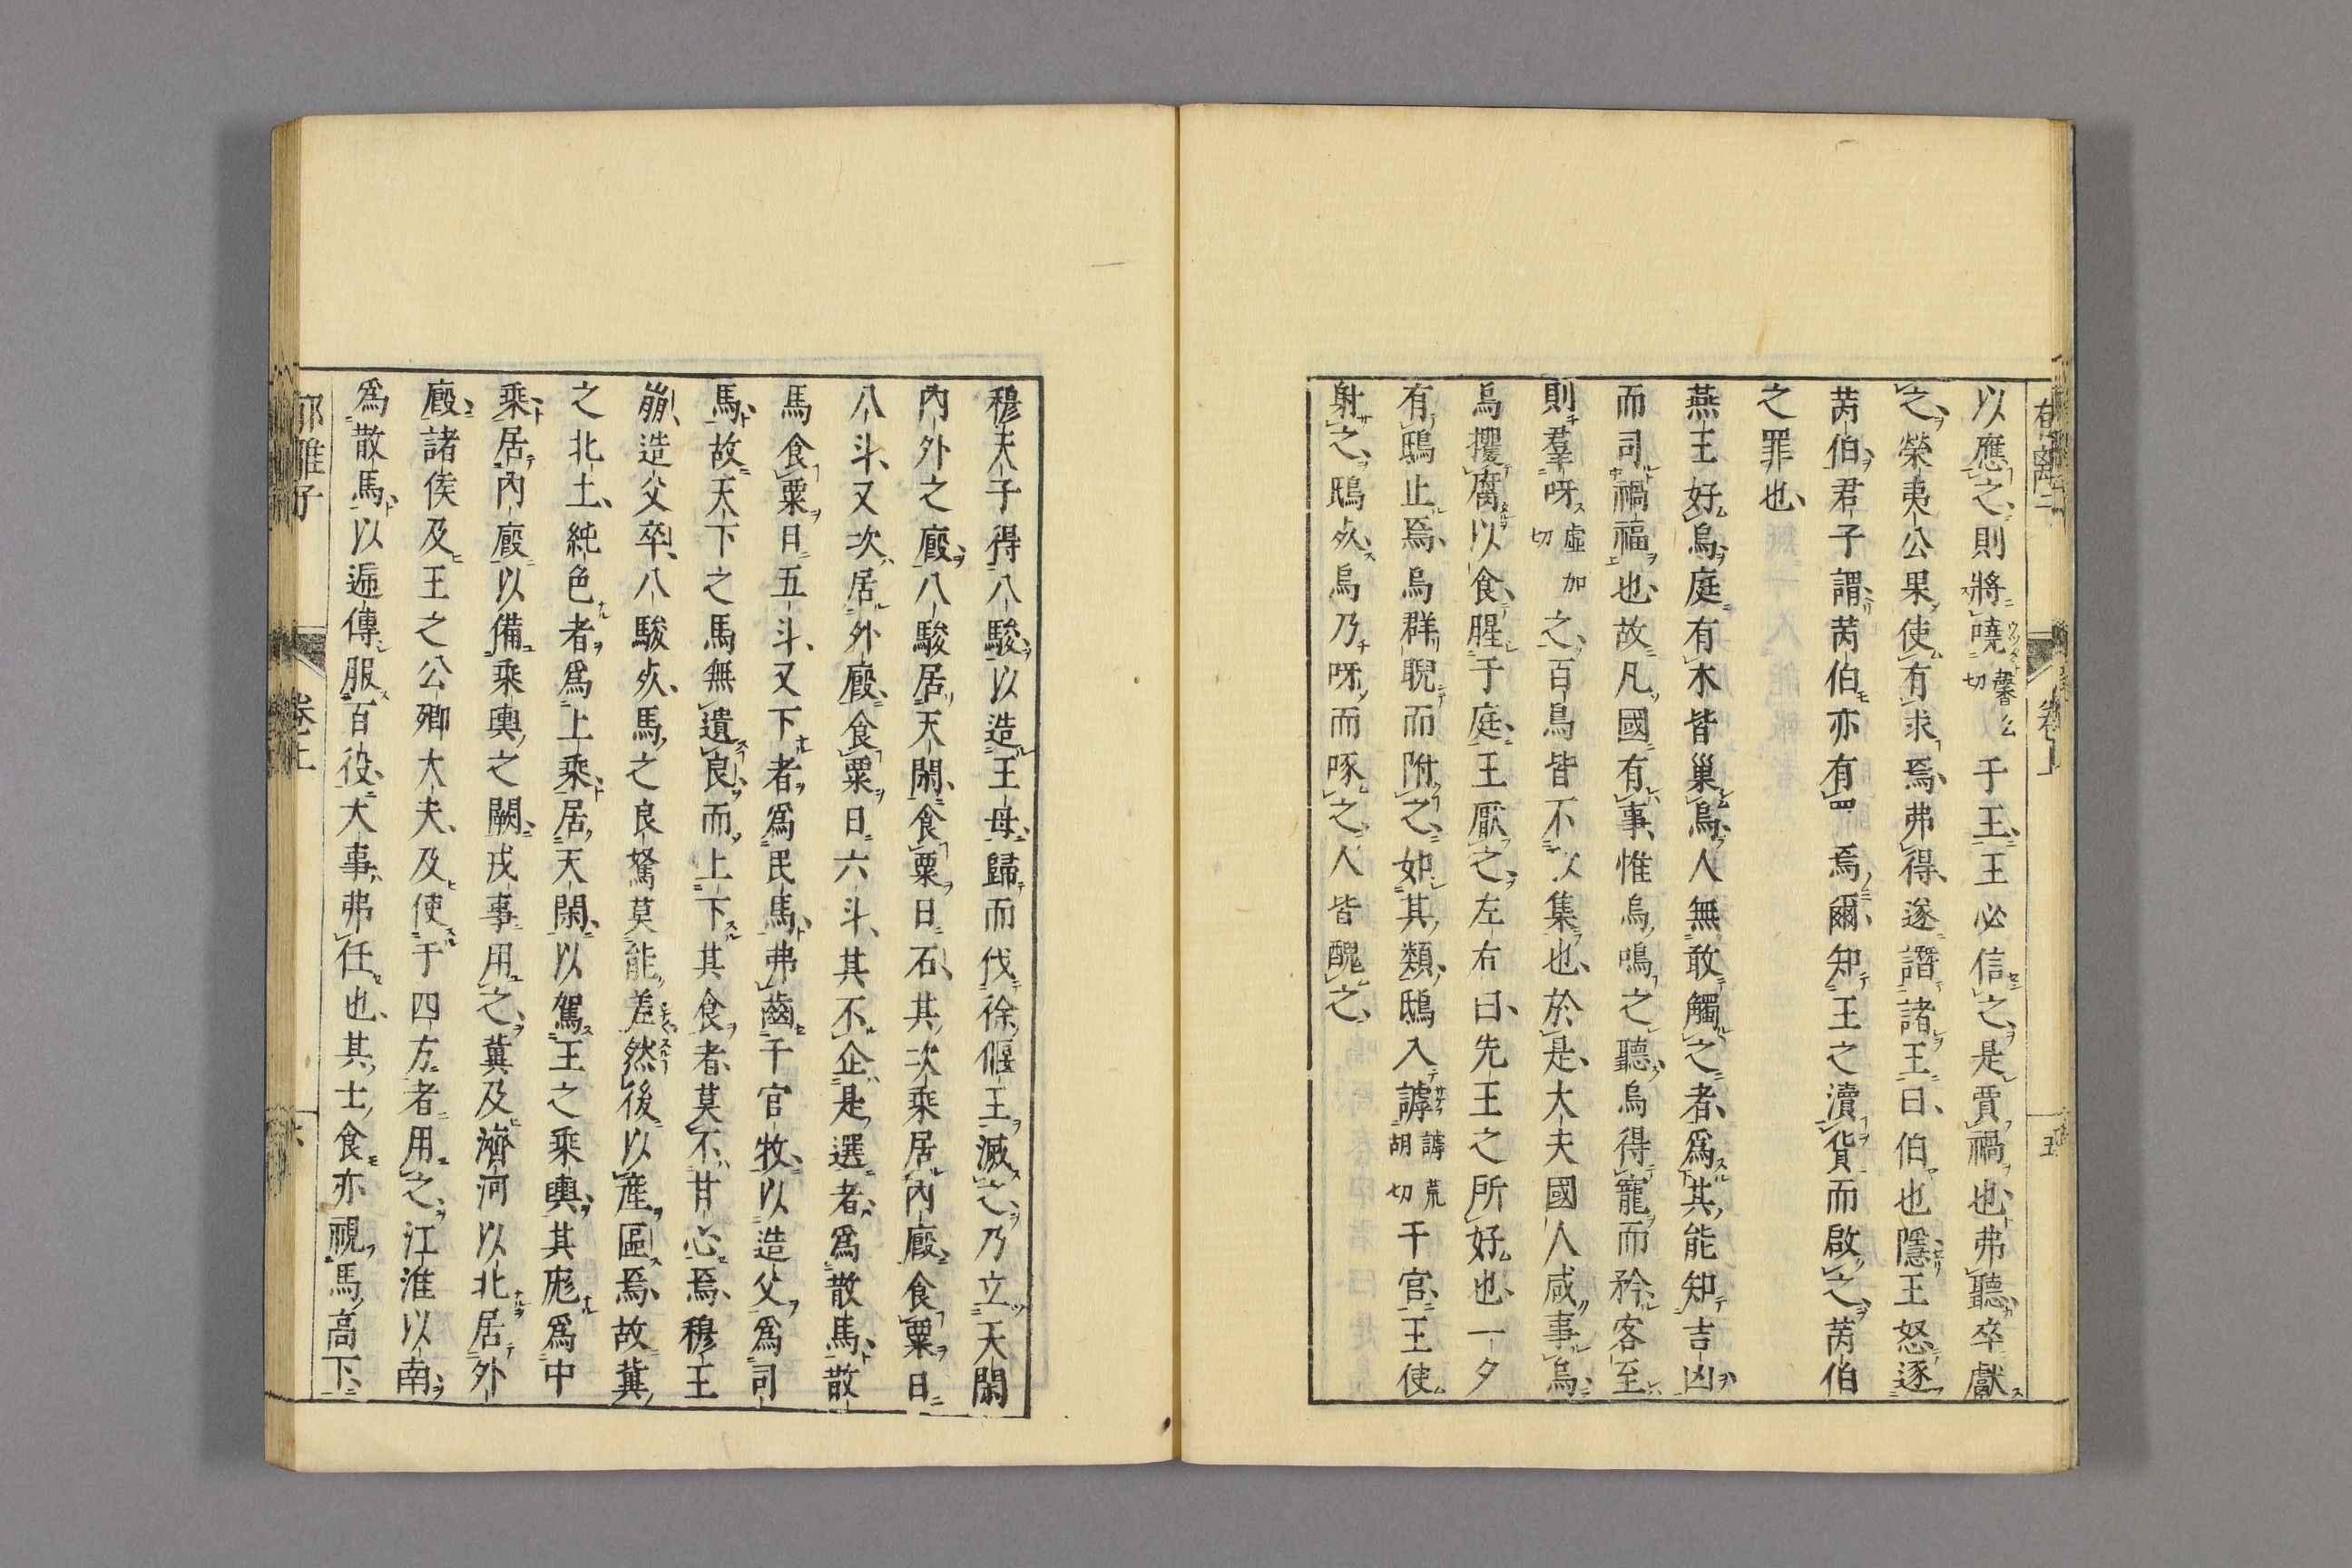 以應之則將嘵馨么切于王王必信之是賈禍也弗聽卒獻
之榮夷公果使有求焉弗得遂譖諸王曰伯也隱王怒逐
芮伯君子謂芮伯亦有四焉爾知王之瀆貨而啟之芮伯
之罪也
燕王好烏庭有木皆巢烏人無敢觸之者爲其能知吉凶
而司禍福也故凡國有事惟烏鳴之聽烏得寵而矜客至
則羣呀虛加切之百鳥皆不以集也於是大夫國人咸事烏
烏攫腐以食腥于庭王厭之左右曰先王之所好也一夕
有鴟止焉烏群睨而附之如其類鴟入謼謼荒胡切于宮王使
射之鴟死烏乃呀而啄之人皆醜之
卷上
五
穆天子得八駿以造王母歸而伐徐偃王滅之乃立天閑
內外之廄八駿居天閑食粟日石其次乘居內廄食粟日
八斗又次居外廄食粟日六斗其不企是選者爲散馬散
馬食粟日五斗又下者爲民馬弗齒于官牧以造父爲司
馬故天下之馬無遺良而上下其食者莫不甘心焉穆王
崩造父卒八駿死馬之良駑莫能差然後以產區焉故冀
之北土純色者爲上乘居天閑以駕王之乘輿其厖爲中
乘居內廄以備乘輿之闕戎事用之冀及濟河以北居外
廄諸侯及王之公卿大夫及使于四方者用之江淮以南
爲散馬以遞傳服百役大事弗任也其士食亦視馬高下
郁離子
卷上
六